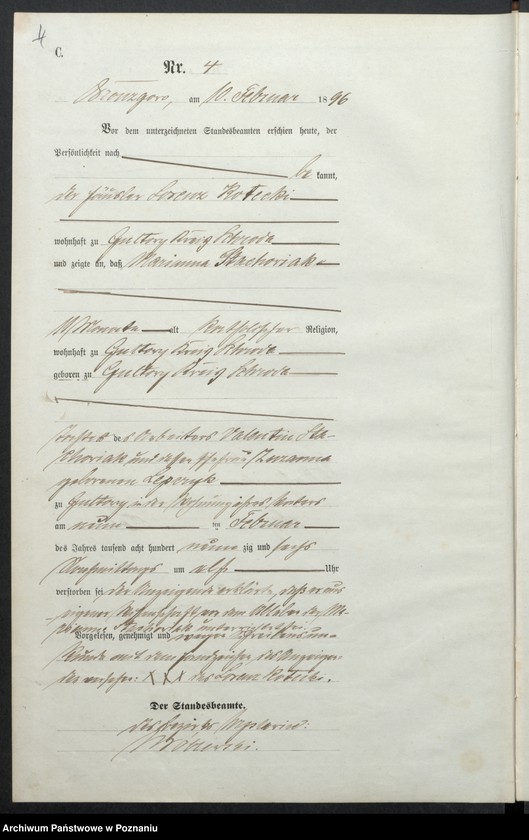 4
C.
Nr. 4
am 10. Februar 1896
Vor dem unterzeichneten Standesbeamten erschien heute, der
Persönlichkeit nach
be kannt,
der Häusler Lorenz Kotecki
wohnhaft zu Gultowy Kreis Schroda
und zeigte an, daß Marianna Stachoriak
11 Monate alt katholischer Religion,
wohnhaft zu Gultowy Kreis Schroda
geboren zu Gultowy Kreis Schroda
Tochter des Arbeiters Valentin Sta-
choriak und dessen Ehefrau Zuzanna
geborenen
zu Gultowy in der Wohnung ihres Vaters
am neun ten Februar
des Jahres tausend acht hundert neun zig und sechs
Vormittags um elf Uhr
verstorben sei der Anzeigende erklärte, daß er aus
eigener Wissenschaft von dem Ableben der Ma-
rianna Stachoriak unterrichtet sei.
Vorgelesen, genehmigt und wegen Schreibensun-
kunde mit dem Handzeichen des Anzeigen-
den versehen: XXX des Lorenz Kotecki.
Der Standesbeamte.
Archiwum Państwowe w Poznaniu